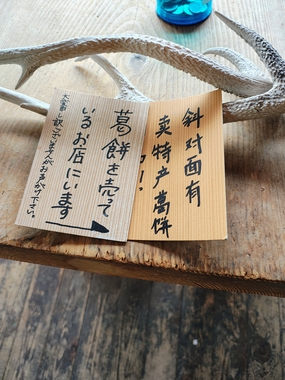 斜对面有
卖特产葛饼
葛餅を売って
いるお店にいます
大変申し訳ございませんがお声がけ下さい。